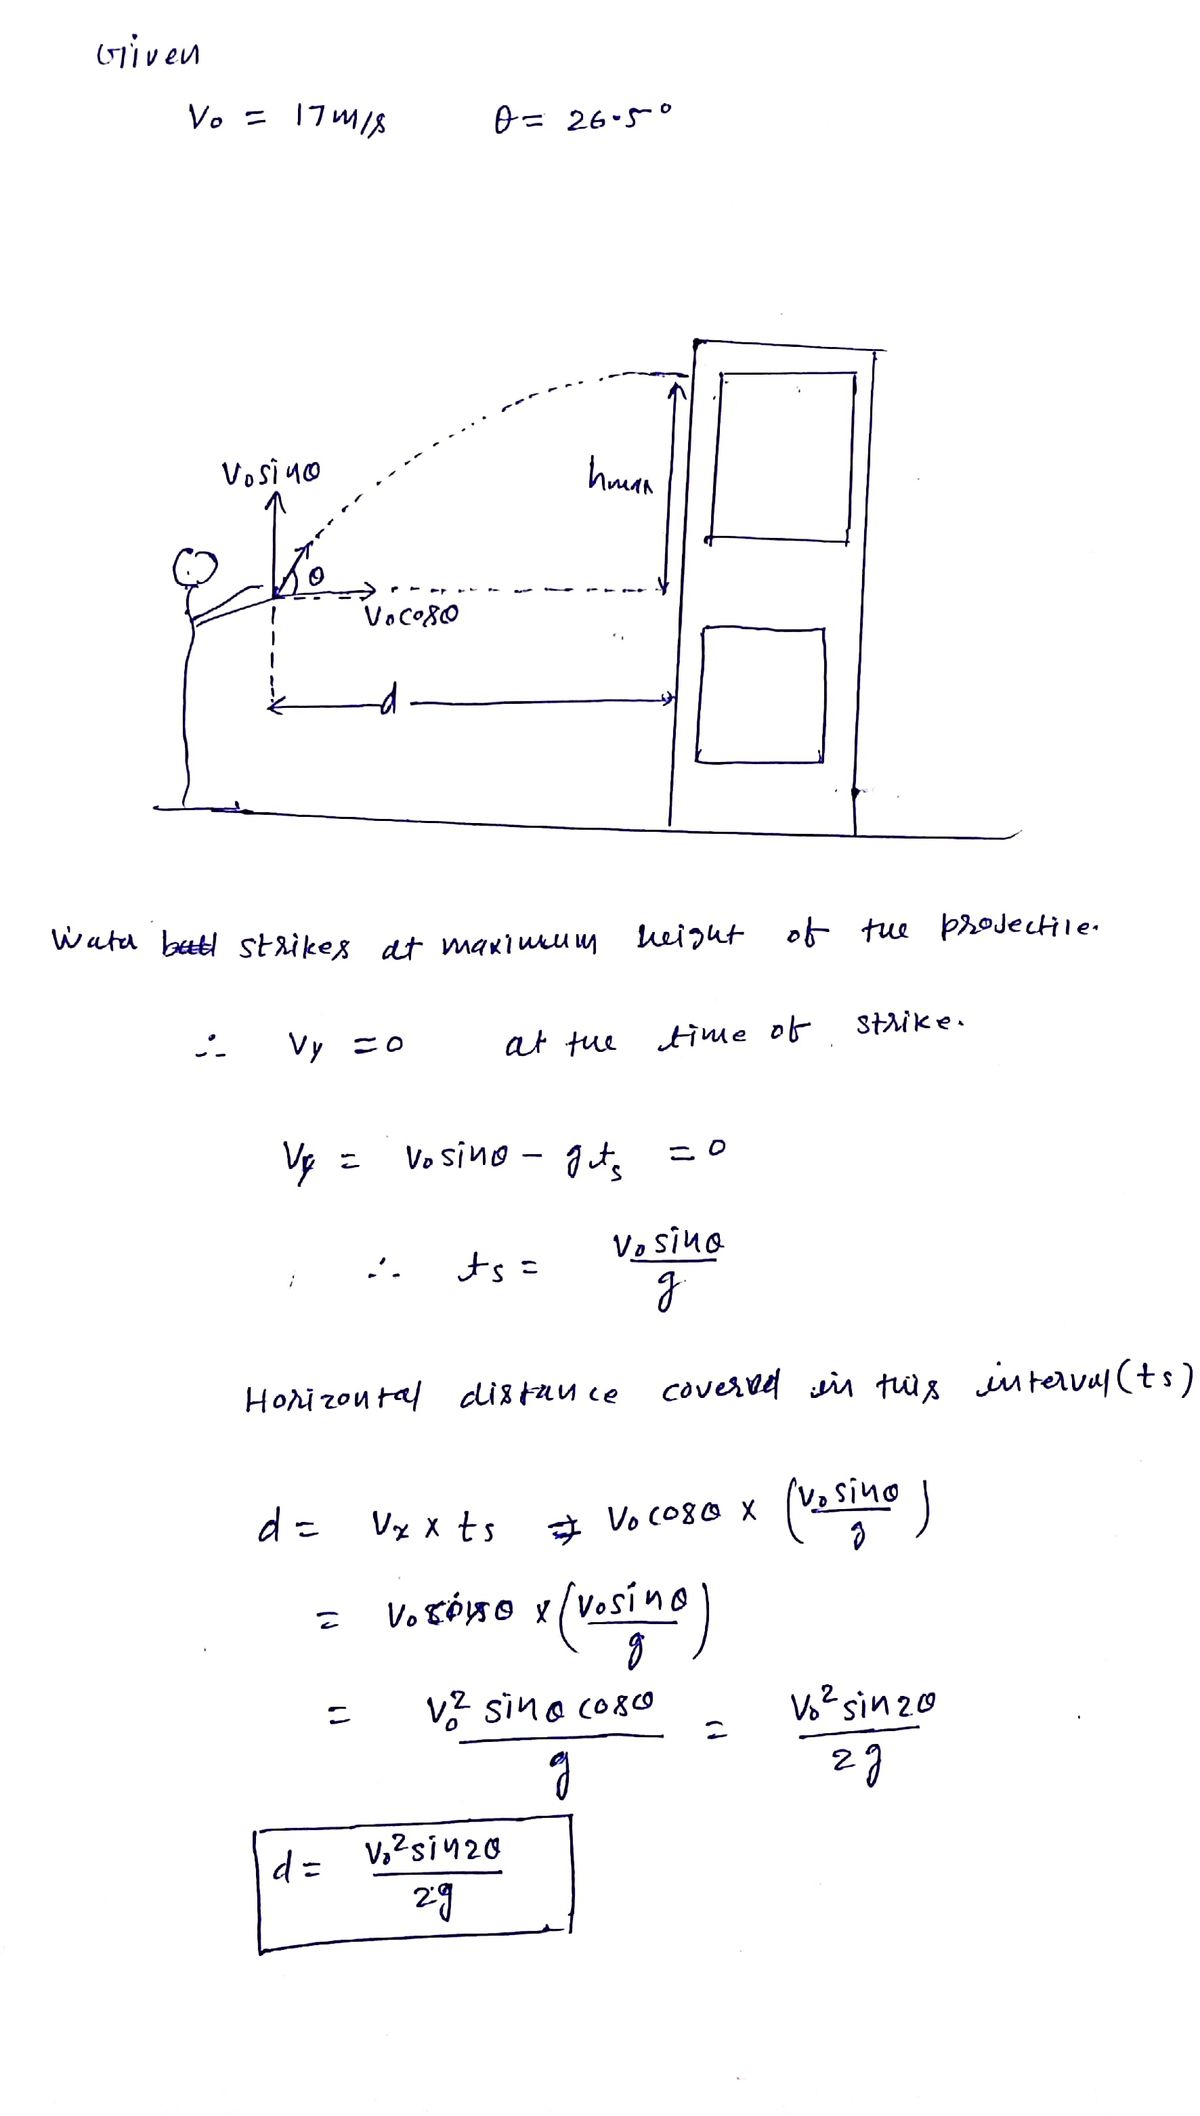 Given
V₀ = 17 m/s θ = 26.5°
V₀sinθ
hmax
θ
V₀cosθ
d
Water strikes at maximum height of the projectile.
∴ Vy = 0 at the time of strike.
Vy = V₀sinθ - gts = 0
∴ ts = V₀sinθ/g
Horizontal distance covered in this interval(ts)
d = Vx x ts ⇒ V₀cosθ x (V₀sinθ/g)
= V₀cosθ x (V₀sinθ/g)
= V₀² sinθ cosθ/g = V₀² sin2θ/2g
d = V₀² sin2θ/2g